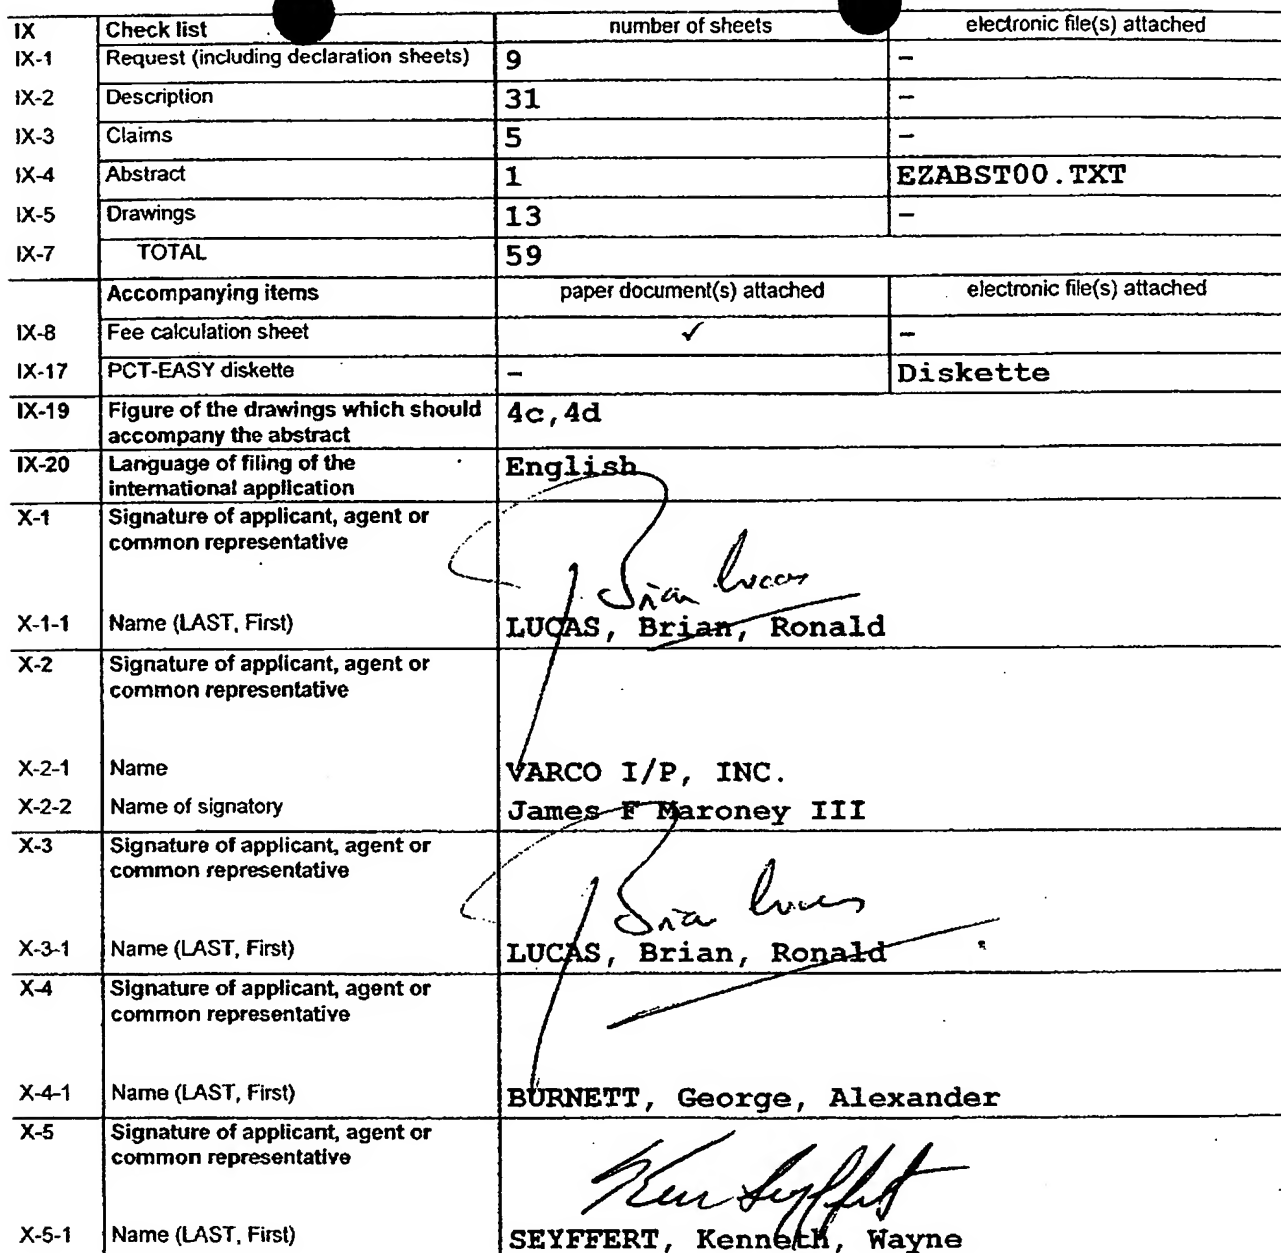 IX Check list number of sheets electronic file(s) attached
IX-1 Request (including declaration sheets) 9 –
IX-2 Description 31 –
IX-3 Claims 5 –
IX-4 Abstract 1 EZABST00.TXT
IX-5 Drawings 13 –
IX-7 TOTAL 59
Accompanying items paper document(s) attached electronic file(s) attached
IX-8 Fee calculation sheet ✓ –
IX-17 PCT-EASY diskette – Diskette
IX-19 Figure of the drawings which should 4c,4d
accompany the abstract
IX-20 Language of filing of the English
international application
X-1 Signature of applicant, agent or
common representative
Brian Lucas
X-1-1 Name (LAST, First) LUCAS, Brian, Ronald
X-2 Signature of applicant, agent or
common representative
X-2-1 Name VARCO I/P, INC.
X-2-2 Name of signatory James F Maroney III
X-3 Signature of applicant, agent or
common representative
Brian Lucas
X-3-1 Name (LAST, First) LUCAS, Brian, Ronald
X-4 Signature of applicant, agent or
common representative
X-4-1 Name (LAST, First) BURNETT, George, Alexander
X-5 Signature of applicant, agent or
common representative
Ken Seyffert
X-5-1 Name (LAST, First) SEYFFERT, Kenneth, Wayne